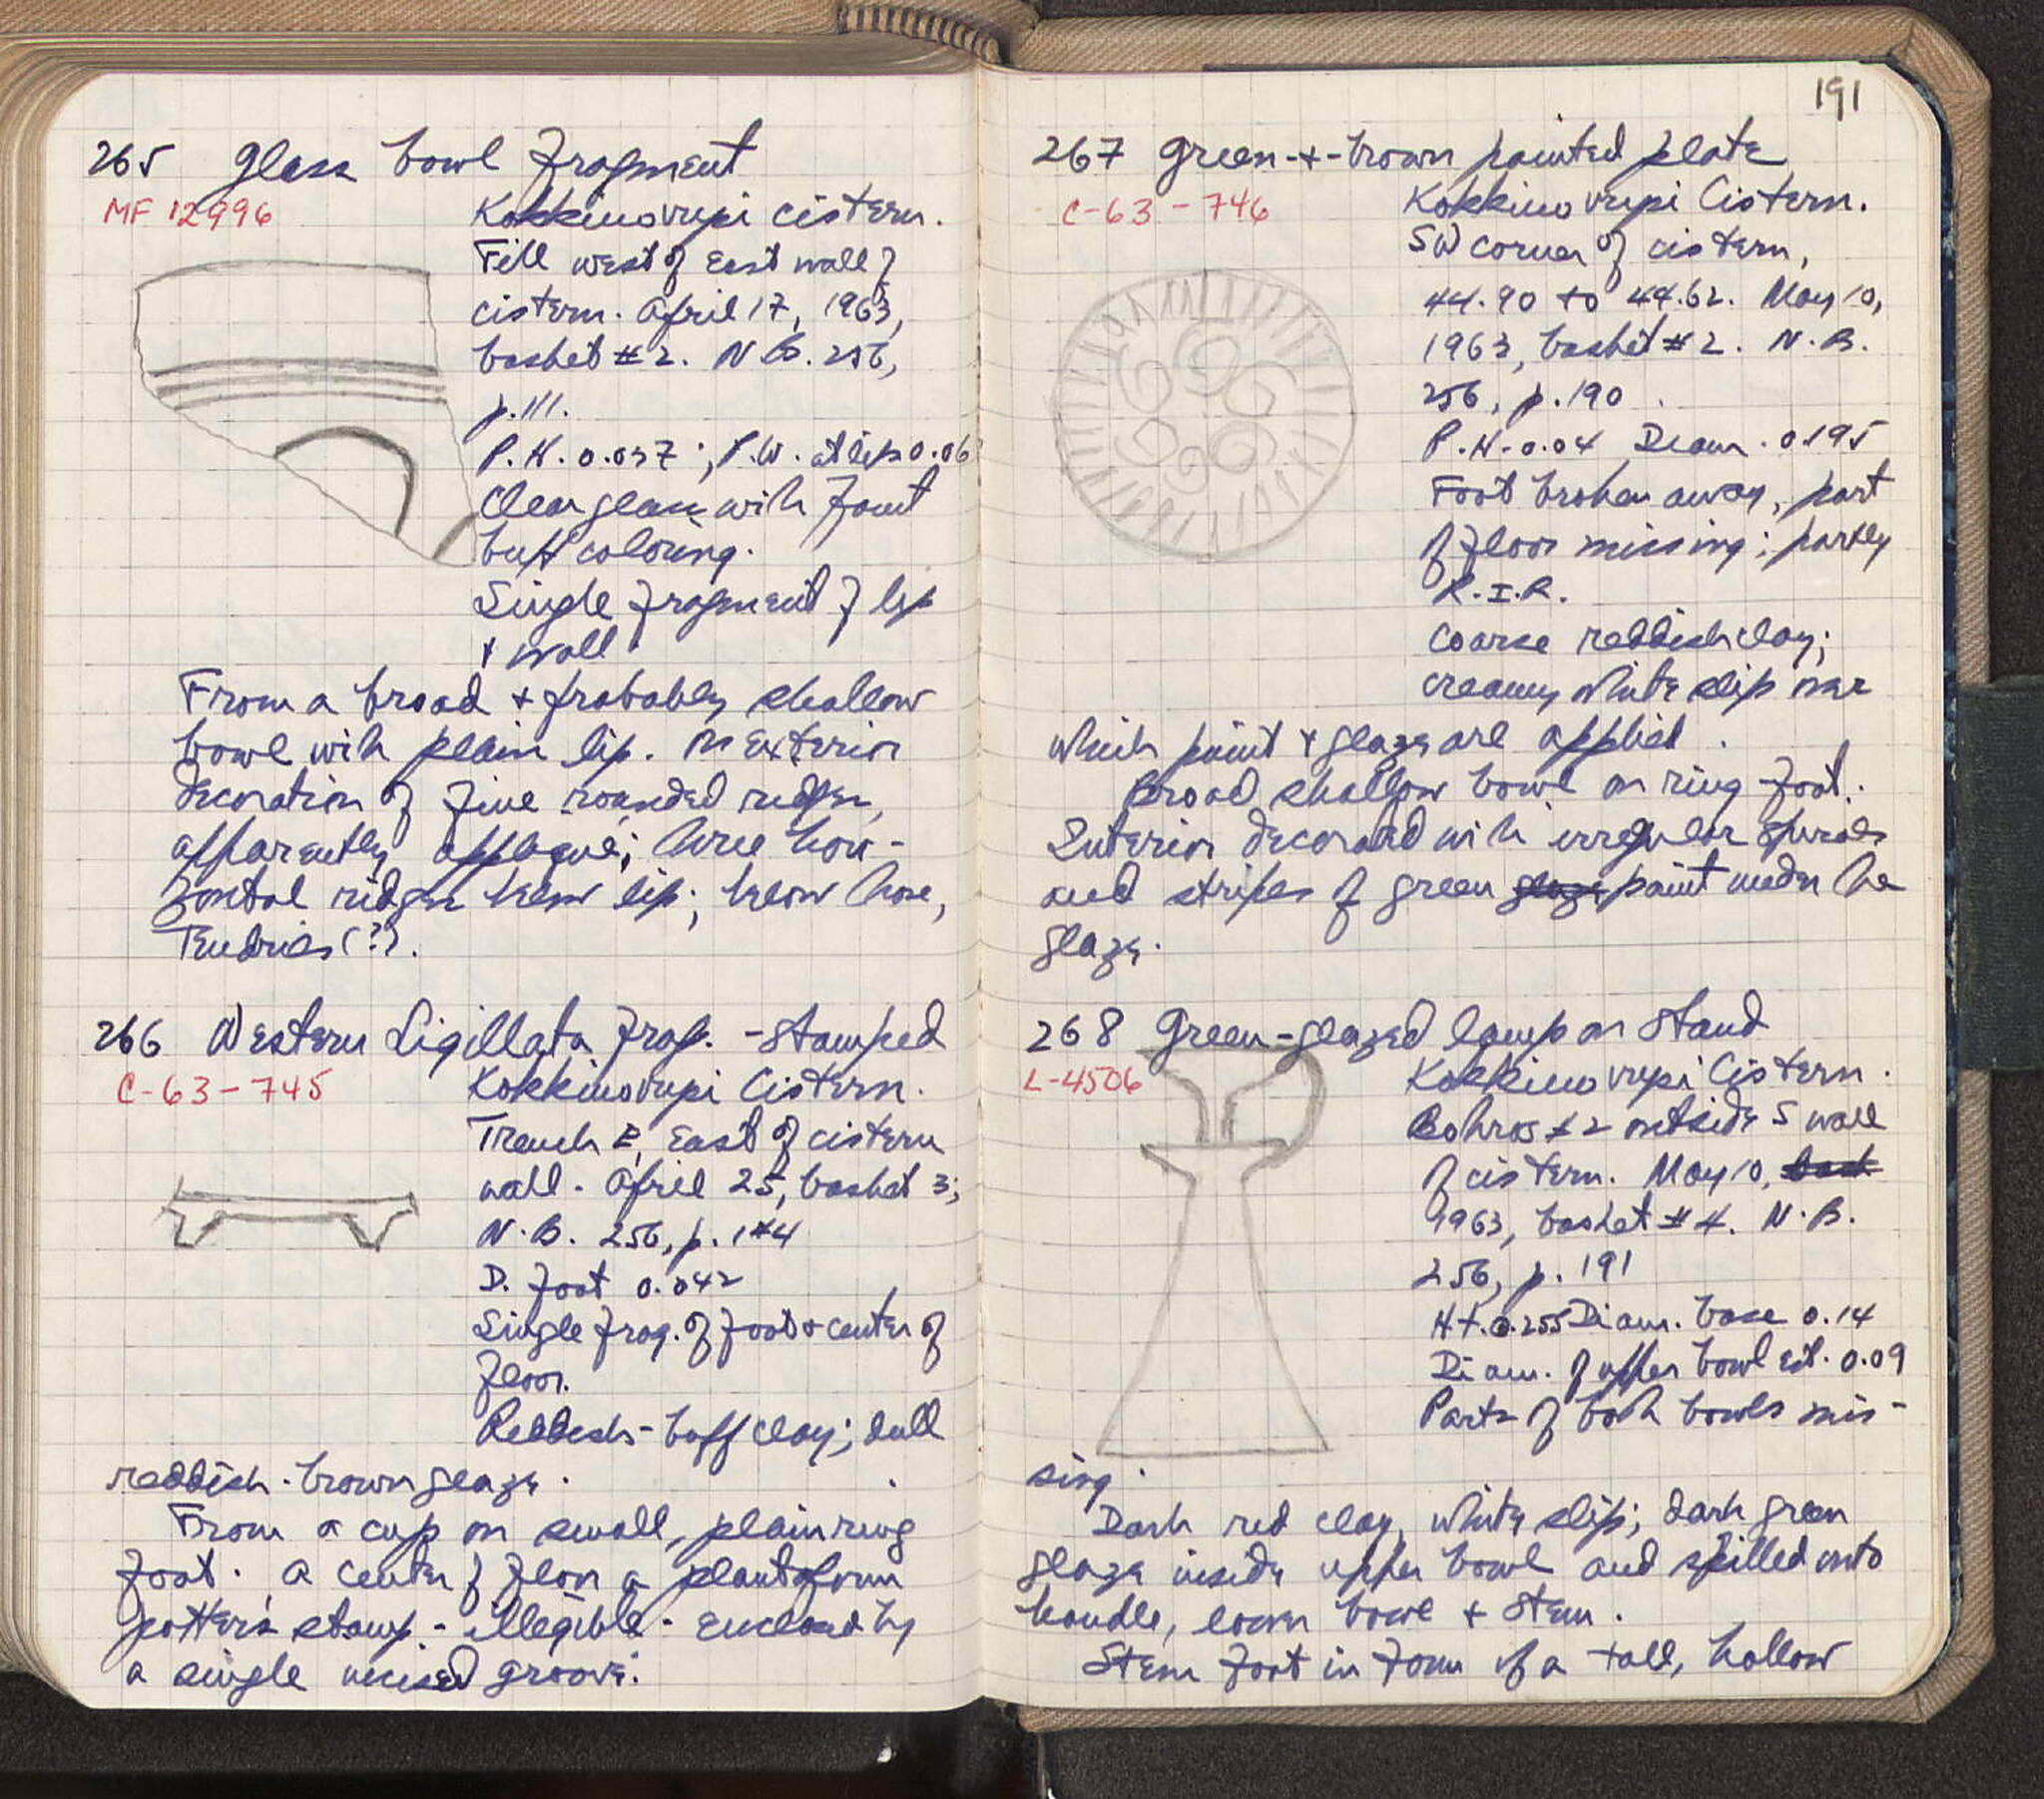 265 Glass bowl fragment
MF 12996
Kokkinovrysi cistern.
Fill west of East wall of
cistern. April 17, 1963,
basket #2. N.B. 256,
p. 111.
P.H. 0.037; P.W. at lip 0.06
Clear glass with faint
buff coloring.
Single fragment of lip
+ wall.
From a broad + probably shallow
bowl with plain lip. On exterior
decoration of fine rounded ridges,
apparently appliqué; three hori-
zontal ridges below lip; below those,
Tendrils (?).
266 Western Sigillata frag. - Stamped
C-63-745
Kokkinovrysi Cistern.
Trench E, East of cistern
wall. April 25, basket 3;
N.B. 256, p. 144
D. foot 0.042
Single frag. of foot + center of
floor.
Reddish-buff clay; dull
reddish-brown glaze.
From a cup on small, plain ring
foot. A center of floor a plantaform
potter's stamp - illegible - enclosed by
a single incised groove.
191
267 Green-+-brown painted plate
C-63-746
Kokkinovrysi Cistern.
SW corner of cistern,
44.90 to 44.62. May 10,
1963, basket #2. N.B.
256, p. 190
P.H. 0.04 Diam. 0.195
Foot broken away, part
of floor missing; partly
R.I.R.
Coarse reddish clay;
creamy white slip over
which paint + glaze are applied.
Broad shallow bowl on ring foot.
Interior decorated with irregular spirals
and stripes of green glaze paint under the
glaze.
268 Green-glazed lamp on Stand
L-4506
Kokkinovrysi Cistern.
Bothros #2 outside S wall
of cistern. May 10, bask
1963, basket #4. N.B.
256, p. 191
Ht. 0.255 Diam. base 0.14
Diam. of upper bowl est. 0.09
Parts of both bowls mis-
sing.
Dark red clay, white slip; dark green
glaze inside upper bowl and spilled onto
handle, lower bowl + stem.
Stem foot in form of a tall, hollow